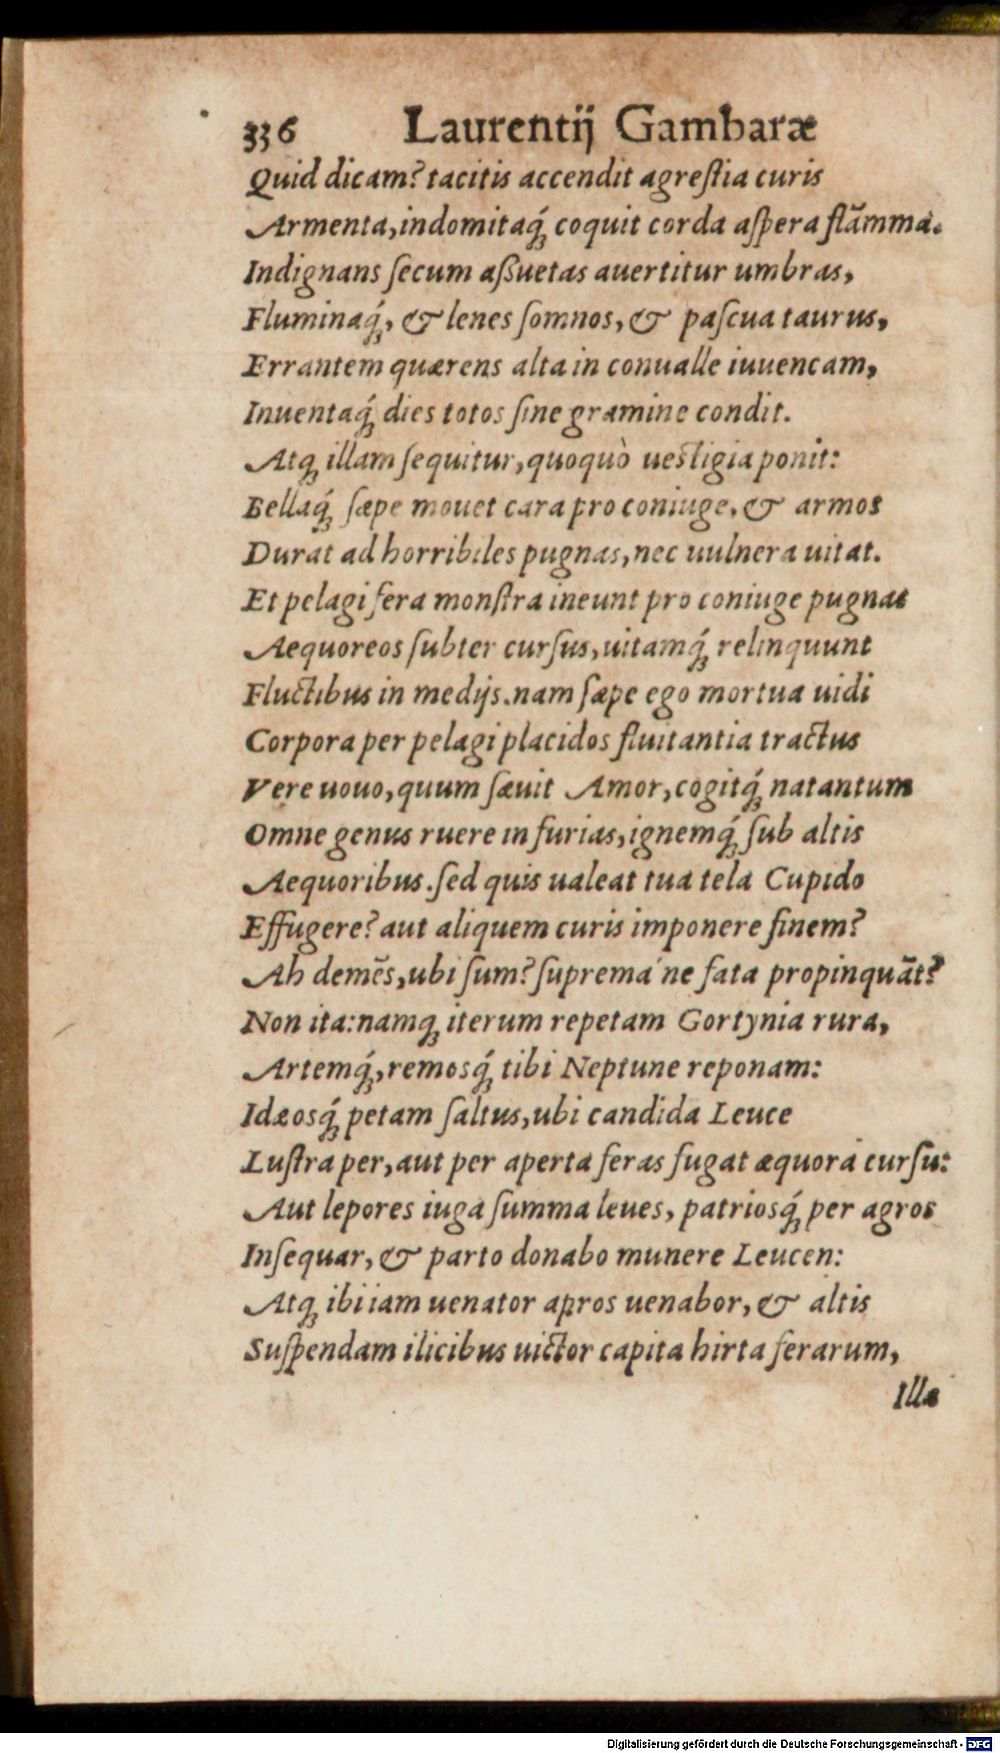 336 Laurentij Gambaræ
Quid dicam? tacitis accendit agreſtia curis
Armenta, indomitaq́; coquit corda aſpera flãmma.
Indignans ſecum aßuetas auertitur umbras,
Fluminaq́;, & lenes ſomnos, & paſcua taurus,
Errantem quærens alta in conualle iuuencam,
Inuentaq́; dies totos ſine gramine condit.
Atq; illam ſequitur, quoquò ueſtigia ponit:
Bellaq́; ſæpe mouet cara pro coniuge, & armos
Durat ad horribiles pugnas, nec uulnera uitat.
Et pelagi fera monſtra ineunt pro coniuge pugnas
Aequoreos ſubter curſus, uitamq́; relinquunt
Fluctibus in medijs. nam ſæpe ego mortua uidi
Corpora per pelagi placidos fluitantia tractus
Vere nouo, quum ſæuit Amor, cogitq́; natantum
Omne genus ruere in furias, ignemq́; ſub altis
Aequoribus. ſed quis ualeat tua tela Cupido
Effugere? aut aliquem curis imponere finem?
Ah demẽs, ubi ſum? ſuprema ne fata propinquãt?
Non ita: namq; iterum repetam Gortynia rura,
Artemq́;, remosq́; tibi Neptune reponam:
Idæosq́; petam ſaltus, ubi candida Leuce
Luſtra per, aut per aperta feras fugat æquora curſu:
Aut lepores iuga ſumma leues, patriosq́; per agros
Inſequar, & parto donabo munere Leucen:
Atq; ibi iam uenator apros uenabor, & altis
Suſpendam ilicibus uictor capita hirta ferarum,
Illa
Digitalisierung gefördert durch die Deutsche Forschungsgemeinschaft - DFG